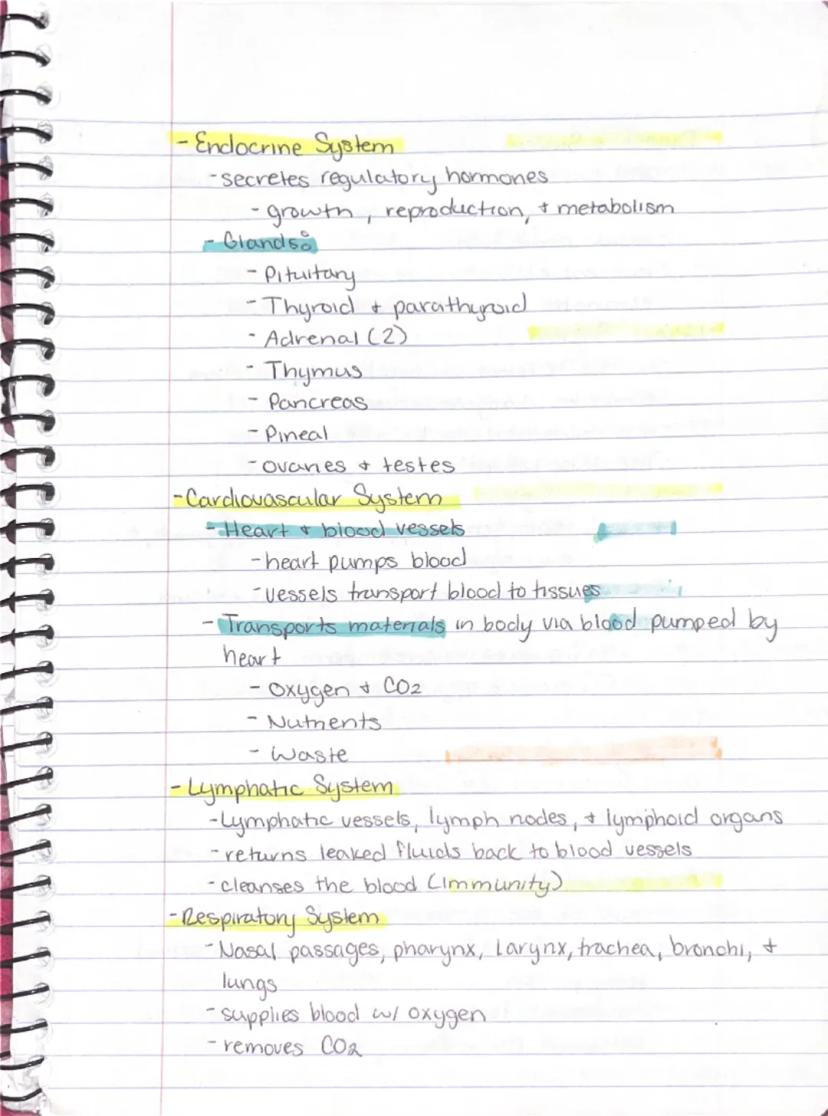 - Endocrine System
- secretes regulatory hormones
- growth, reproduction, + metabolism
- Glands:
- Pituitary
- Thyroid + parathyroid
- Adrenal (2)
- Thymus
- Pancreas
- Pineal
- ovaries + testes
- Cardiovascular System
- Heart + blood vessels
- heart pumps blood
- vessels transport blood to tissues
- Transports materials in body via blood pumped by
heart
- Oxygen + CO2
- Nutrients
- Waste
- Lymphatic System
- Lymphatic vessels, lymph nodes, + lymphoid organs
- returns leaked fluids back to blood vessels
- cleanses the blood (immunity)
- Respiratory System
- Nasal passages, pharynx, larynx, trachea, bronchi, +
lungs
- supplies blood w/ oxygen
- removes CO2